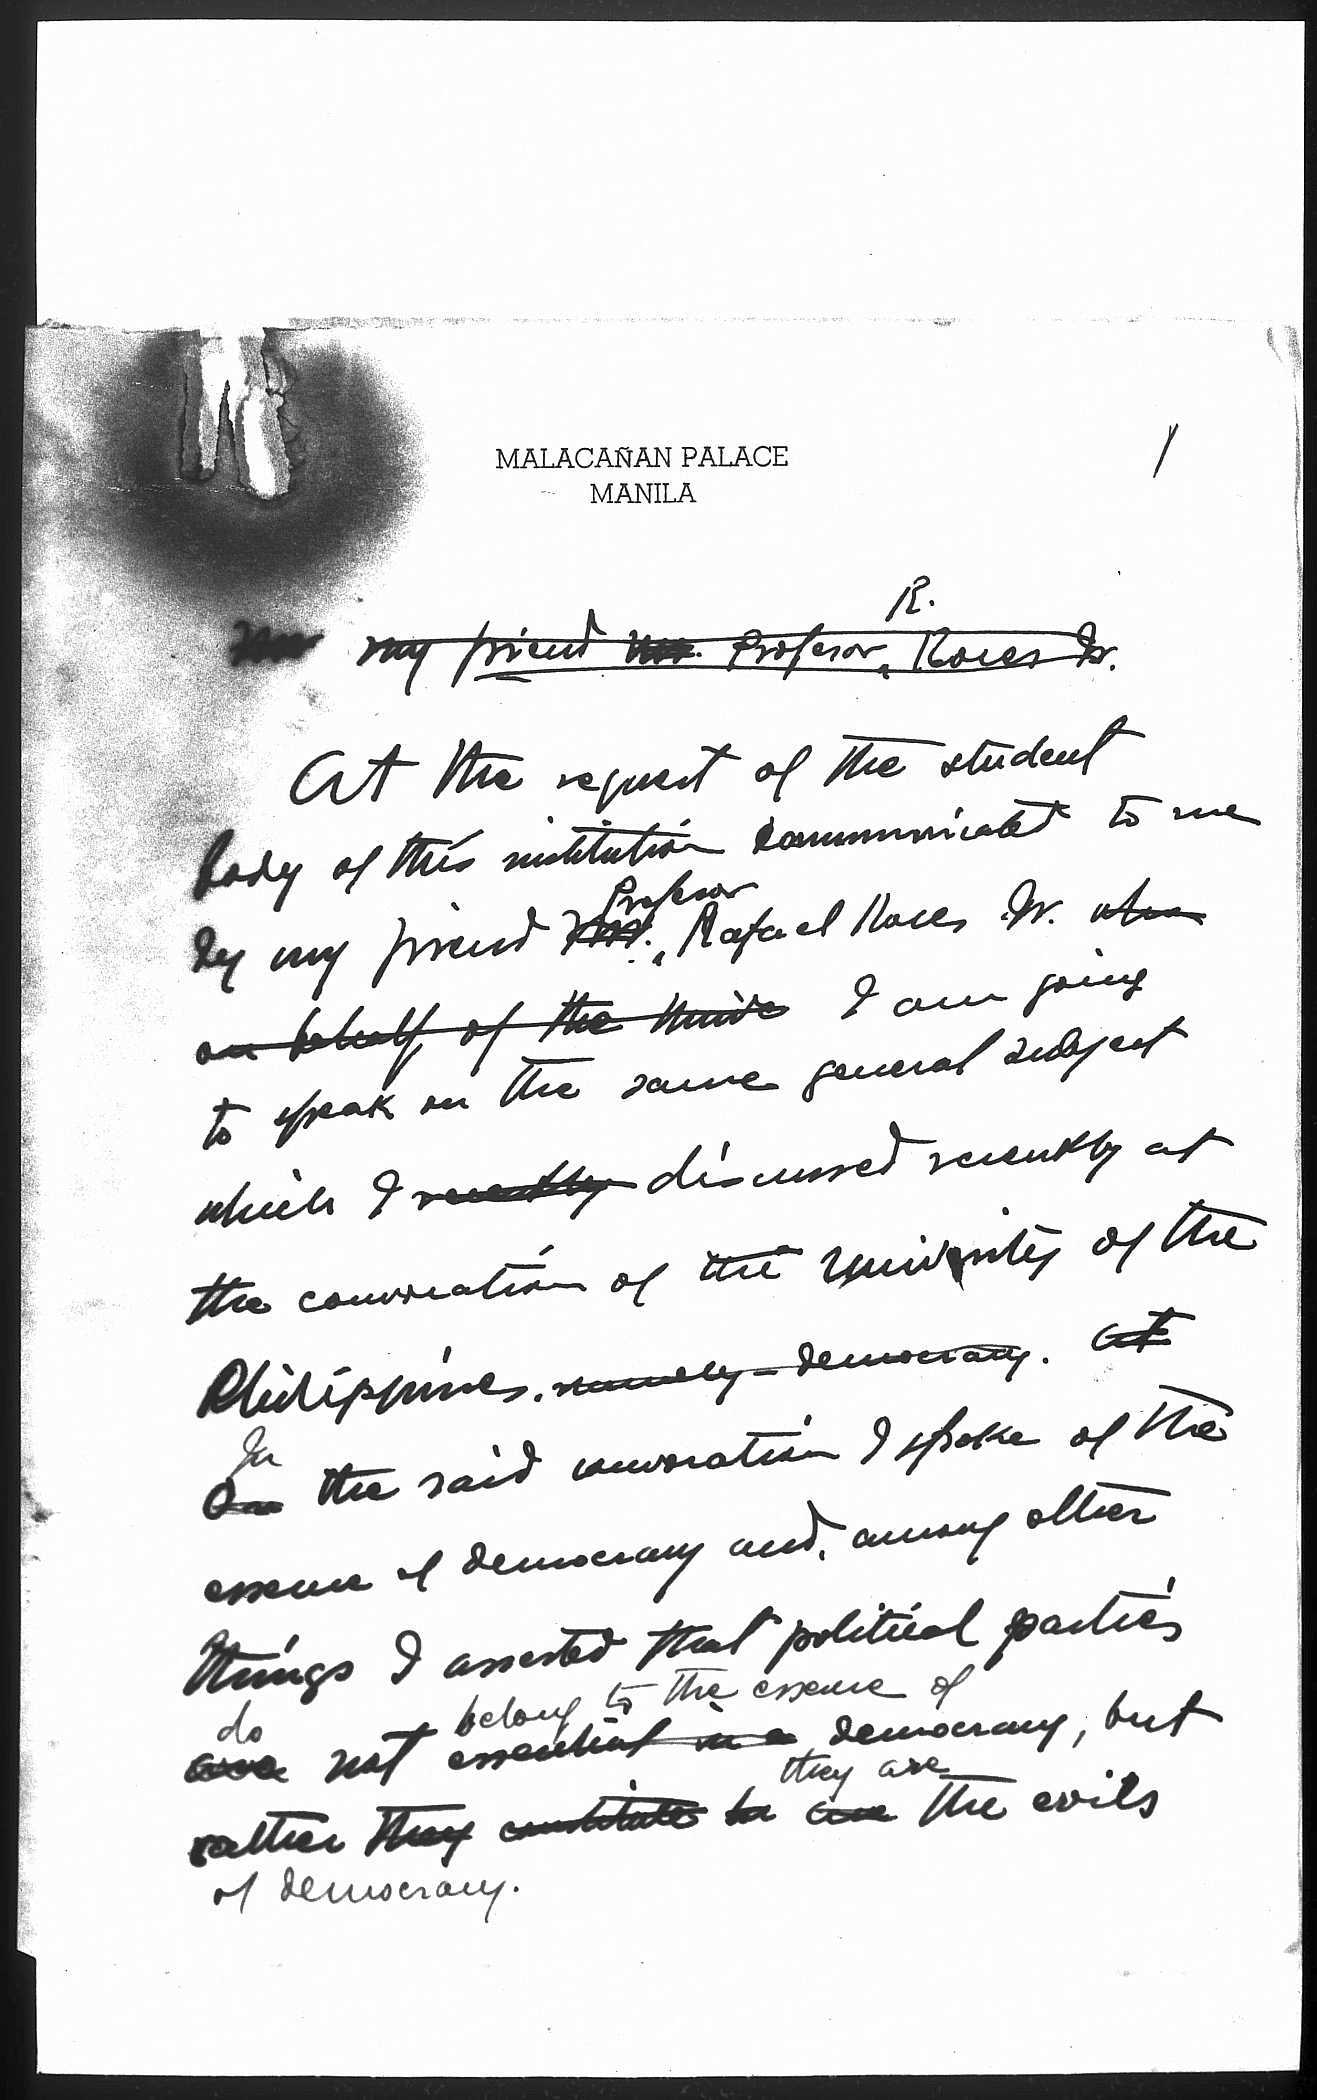 MALACAÑAN PALACE
MANILA
1
R.
my friend Mr. Professor, Roces Jr.
At the request of the student
body of this institution communicated to me
Professor
by my friend Mr., Rafael Roces Jr. who
on behalf of the Unive I am going
to speak on the same general subject
which I recently discussed recently at
the convocation of the University of the
Philippines. namely - democracy. At
In
On the said convocation I spoke of the
essence of democracy and, among other
things I asserted that political parties
do belong to the essence of
are not essential in a democracy, but
they are
rather they constitute are the evils
of democracy.